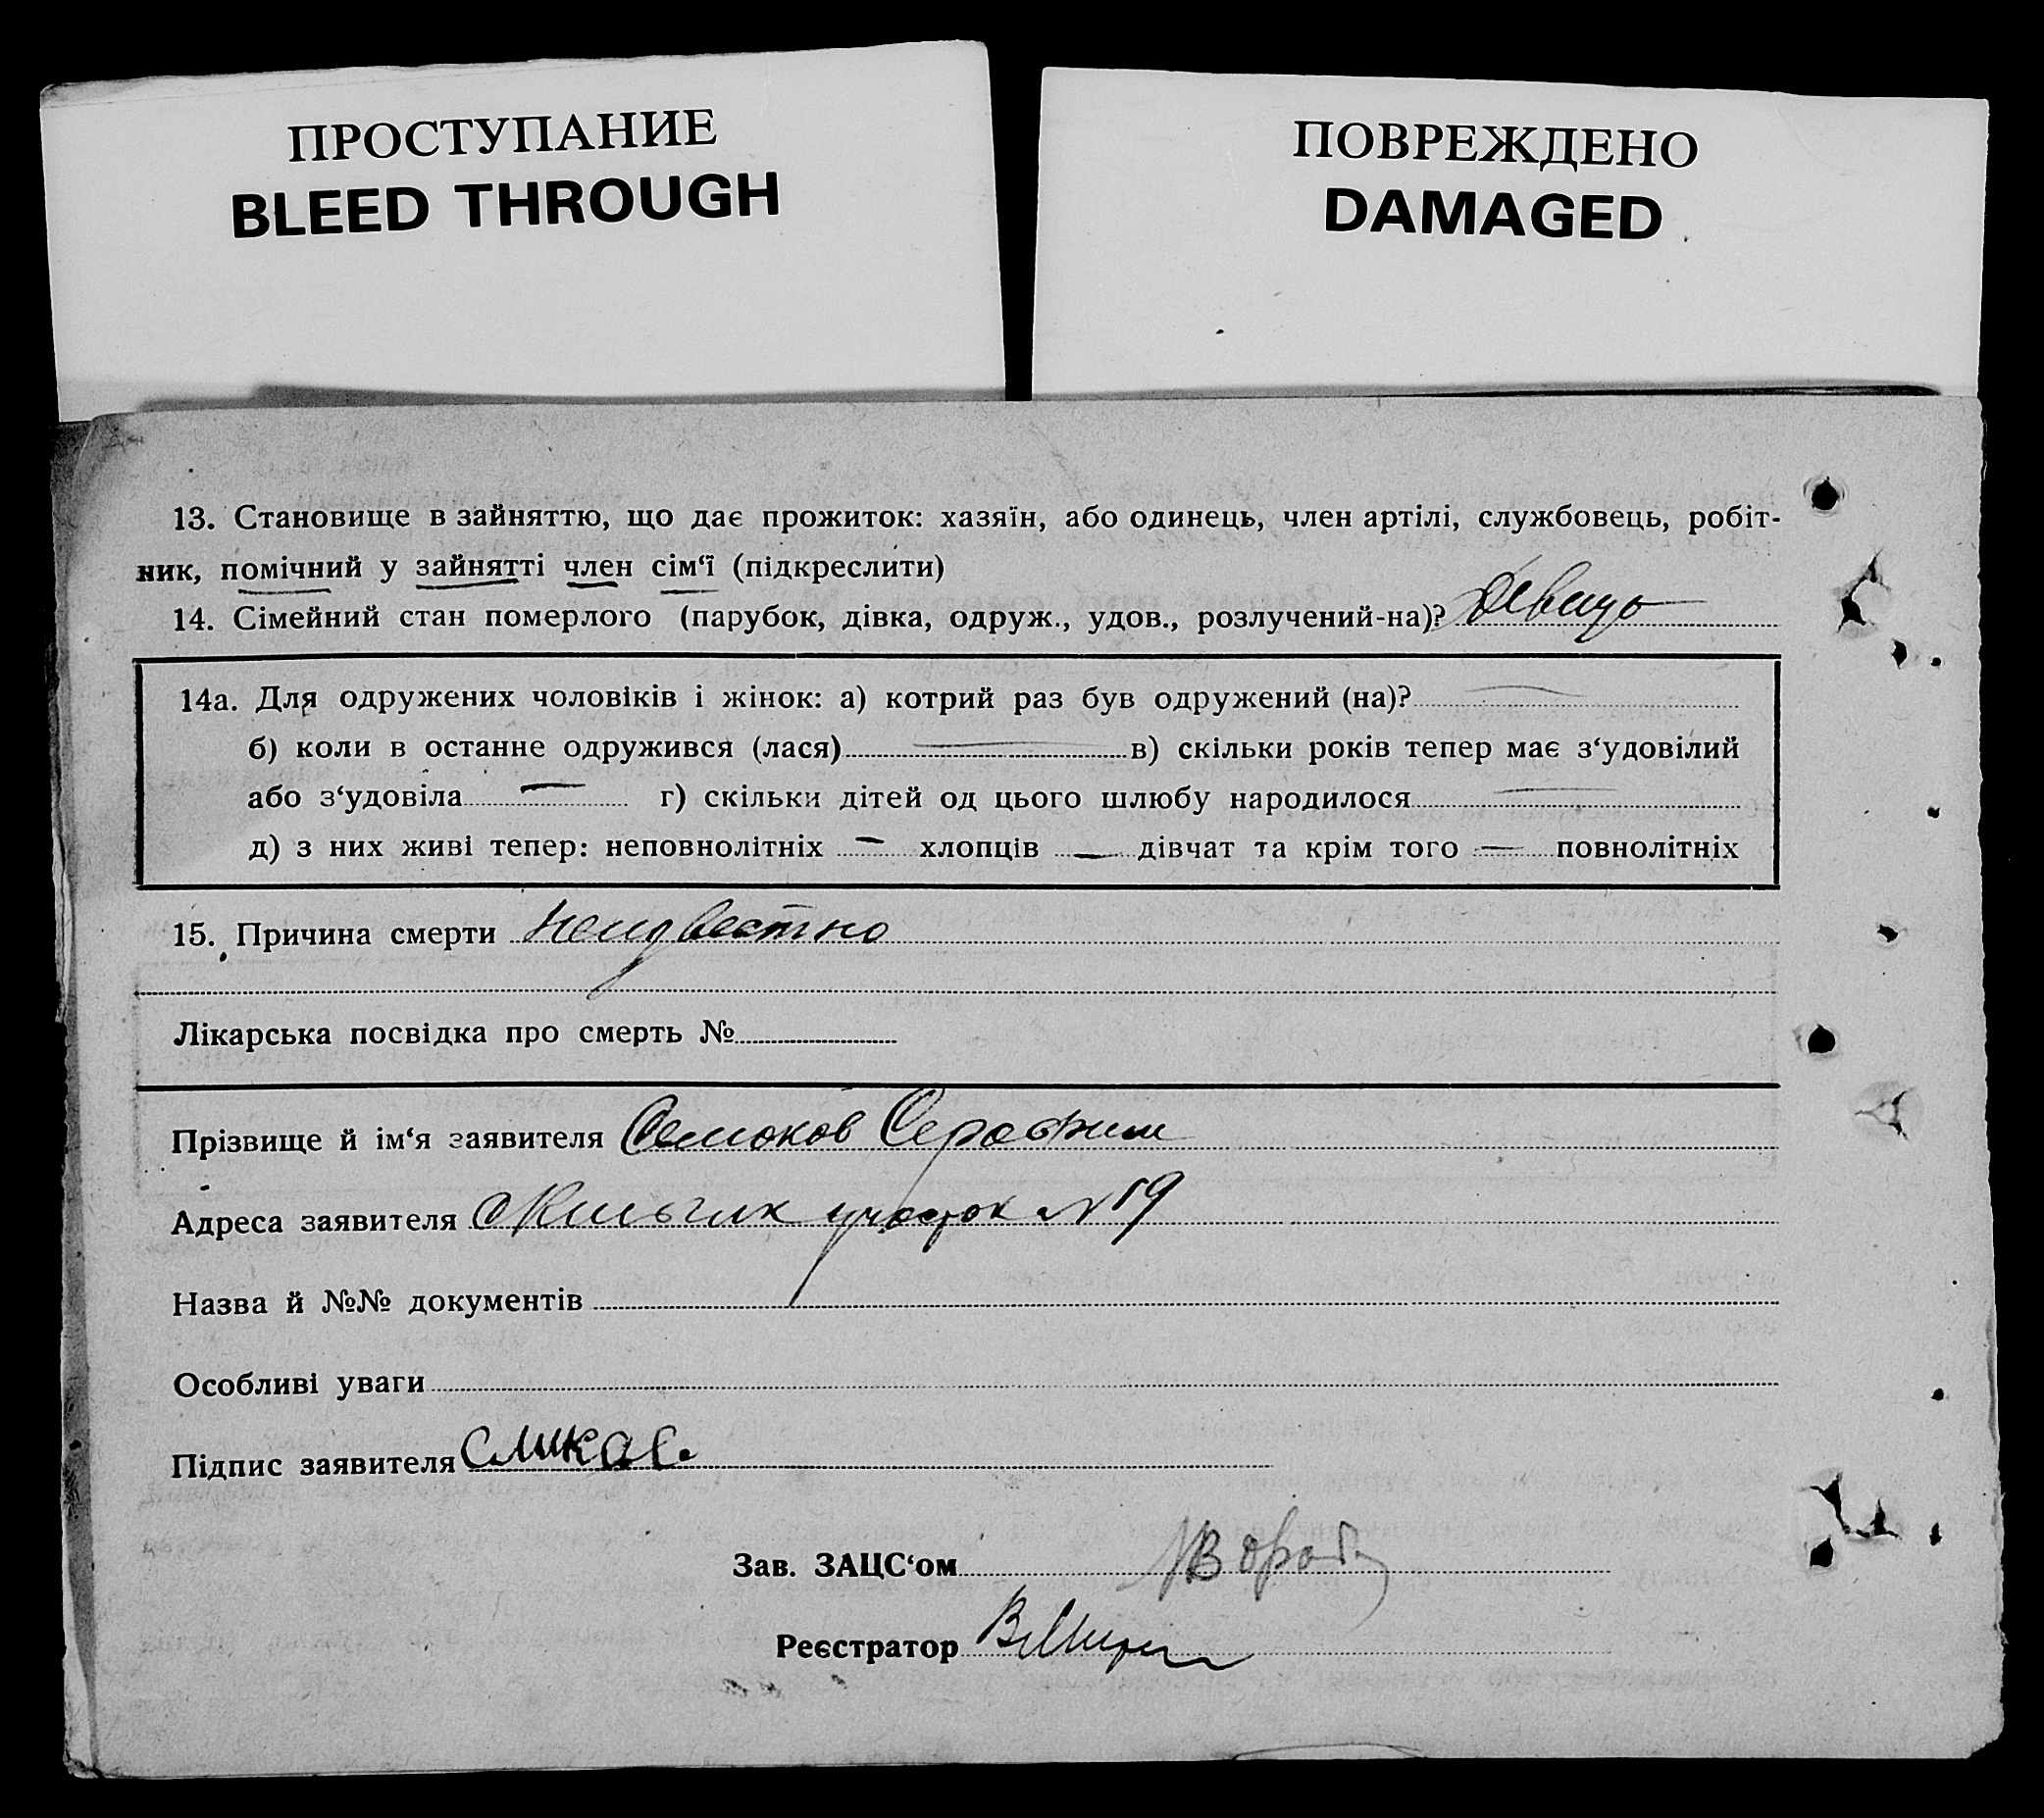 ПРОСТУПАНИЕ
BLEED THROUGH
ПОВРЕЖДЕНО
DAMAGED
13. Становище в зайняттю, що дає прожиток: хазяїн, або одинець, член артілі, службовець, робіт-
ник, помічний у зайнятті член сім‘ї (підкреслити)
14. Сімейний стан померлого (парубок, дівка, одруж., удов., розлучений-на)? девица
14а. Для одружених чоловіків і жінок: а) котрий раз був одружений (на)?
б) коли в останне одружився (лася) в) скільки років тепер має з‘удовілий
або з‘удовіла г) скільки дітей од цього шлюбу народилося
д) з них живі тепер: неповнолітніх — хлопців — дівчат та крім того — повнолітніх
15. Причина смерти неизвестно
Лікарська посвідка про смерть №
Прізвище й ім‘я заявителя Серафим
Адреса заявителя участок №19
Назва й №№ документів
Особливі уваги
Підпис заявителя
Зав. ЗАЦС‘ом
Реєстратор